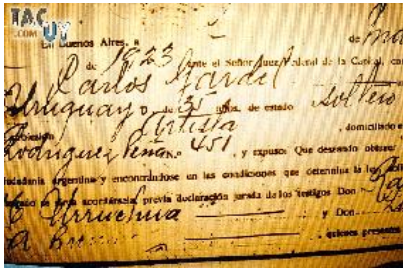 TAC
.COM UY
En Buenos Aires, a de
de 1923 ante el Señor Juez Federal de la Capital, co
Carlos Gardel
Uruguay D. de 35 años, de estado soltero
Artista, domiciliado e
Rodriguez Peña N.º 451, y expuso: Que deseando obtener
udadanía argentina y encontrándose en las condiciones que determina la ley
se le acordársela, previa declaración jurada de los testigos Don
E Urruchua y Don
A quienes presentes